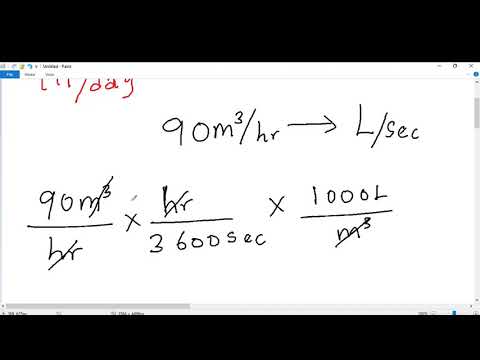 Untitled - Paint
File Home View
m³/day
90m³/hr → L/sec
90m³/hr × hr/3600sec × 1000L/m³
100%